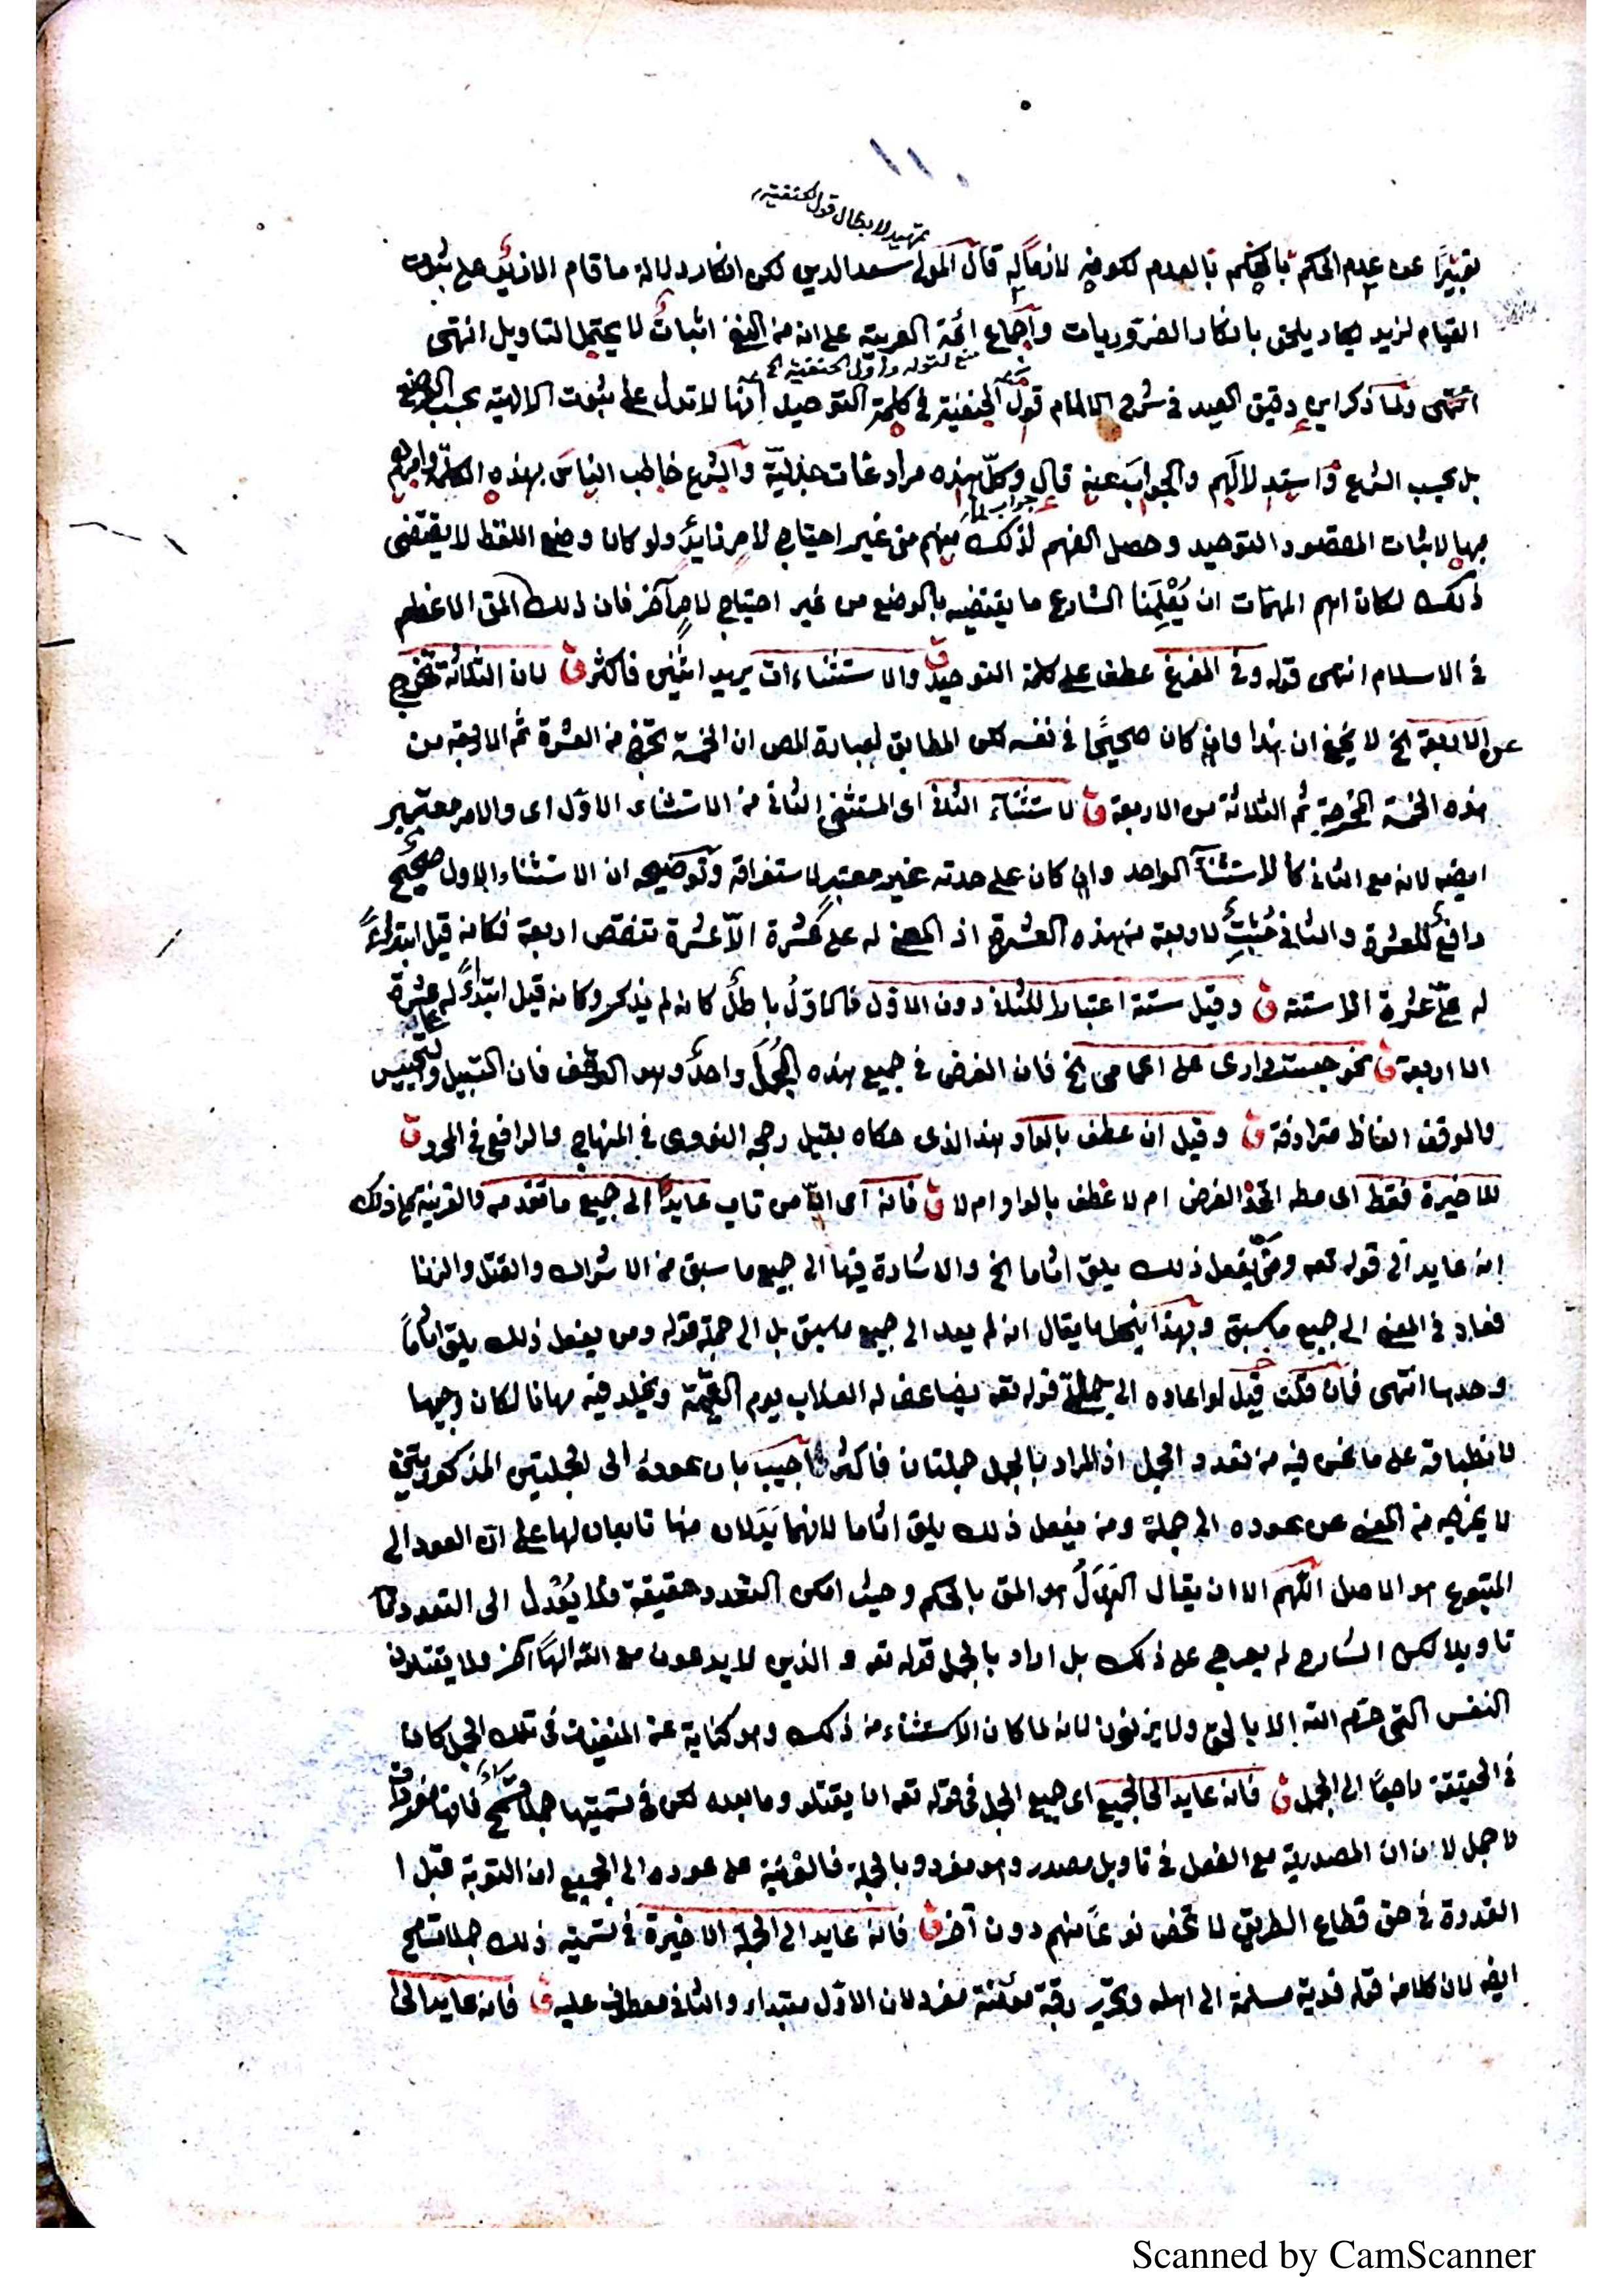 ١١٠
تمهيد لابطال قول الحنفية
تعبيرًا عن عدم الحكم بالحكم بالعدم لكونه لازما له قال المولى سعد الدين لكن انكار دلالة ما قام الا زيد على ثبوت
القيام لزيد يكاد يلحق بانكار الضروريات واجماع ائمة العربية على انه من النفى اثبات لا يحتمل التاويل انتهى
منع لقوله واوّل الحنفية الخ
انتهى ولما ذكر ابن دقيق العيد في شرح الالمام قول الحنفية في كلمة التوحيد انها لا تدل على ثبوت الالهية بحسب الوضع
بل بحسب الشرع واستدلالهم والجواب عنه قال وكل هذه مرادغات جدلية والشرع خاطب الناس بهذه الكلمة وامرهم
جواب لما
بها لاثبات المقصود التوحيد وحصل الفهم لذلك منهم من غير احتياج لامر زايد ولو كان وضع اللفظ لا يقتضى
ذلك لكان اهم المهمات ان يُعْلِمَنا الشارع ما يقتضيه بالوضع من غير احتياج لامر آخر فان ذلك المق الاعظم
في الاسلام انتهى قوله وفي المفرغ عطف على كلمة التوحيد ق والاستثناءات يريد اثنين فاكثر ق لان الثلاثة تخرج
عن الاربعة الخ لا يخفى ان هذا وان كان صحيحًا في نفسه لكن المطابق لعبارة المص ان الخمسة تخرج من العشرة ثم الاربعة من
هذه الخمسة المخرجة ثم الثلاثة من الاربعة ق لاستثناء الثانى اى المستثنى الثانى من الاستثناء الاول اى والامر معتبر
ايضه لانه مع الثانى كالاستثناء الواحد وان كان على حدته غير معتبر لاستغراقه وتوضيحه ان الاستثناء الاول صحيح
دافع للعشرة والثانى مُثبِت لاربعة من هذه العشرة اذ المعنى له على عشرة الّا عشرة تنقص اربعة فكانه قيل ابتداءً
له علىّ عشرة الا ستة ق وقيل ستة اعتبارا للثانى دون الاول فالاوّل باطل كانه لم يذكر وكانه قيل ابتداءً له على عشرة
الا اربعة ق نحو حبست دارى على اعمامى الخ فان الغرض في جميع هذه الجُمَل واحد وهو الوقف فان التسبيل والتحبيس
والوقف الفاظ مترادفة ق وقيل ان عطف بالواو هذا الذى حكاه بقيل رجحه النووى في المنهاج والرافعى في المحرر ق
للاخيرة فقط اى سواء اتحد الغرض ام لا عطف بالواو ام لا ق فانه اى الّا من تاب عايد الى جميع ما تقدمه والقرينة على ذلك
انه عايد الى قوله تعه ومن يفعل ذلك يلق اثاما الخ والاشارة فيها الى جميع ما سبق من الاشراك والقتل والزنا
فعاد في المعنى الى جميع ما سبق وبهذا ينحل ما يقال انه لم يعد الى جميع ما سبق بل الى جملة قوله ومن يفعل ذلك يلق اثامًا
وحدها انتهى فان قلت قيل لو اعاده الى جملة قوله تعه يضاعف له العذاب يوم القيمة ويخلد فيه مهانا لكان وجيها
لانطباقه على ما نحن فيه من تعدد الجمل اذ المراد بالجمل جملتان فاكثر اجيب بان عوده الى الجملتين المذكورتين
لا يخرجه من المعنى عن عوده الى جملة ومن يفعل ذلك يلق اثاما لانهما بَدَلان منها تابعان لها على ان العود الى
المتبوع هو الاصل اللهم الا ان يقال البَدَلُ هو المق بالحكم وحيث امكن التعدد حقيقة فلا يُعْدل الى التعدد
تاويلا لكن الشارح لم يعرج على ذلك بل اراد بالجمل قوله تعه والذين لا يدعون مع الله الهًا آخر ولا يقتلون
النفس التى حرّم الله الا بالحق ولا يزنون لانه لما كان الاستثناء من ذلك وهو كناية عن المنفيات في تلك الجمل كان
في الحقيقة راجعًا الى الجمل ق فانه عايد الى الجميع اى جميع الجمل في قوله تعه ان يقتلو وما بعده لكن في تسميتها جملا تسمح فانها مفردات
لا جمل لان ان المصدرية مع الفعل في تاويل مصدر وهو مفرد وبالجملة فالقرينة على عوده الى الجميع ان التوبة قبل ا
القدرة في حق قطاع الطريق لا تخص نوعًا منهم دون آخر ق فانه عايد الى الجملة الاخيرة في تسميته ذلك جملا تسامح
ايضه لان كلا من قوله فدية مسلمة الى اهله وتحرير رقبة مؤمنة مفرد لان الاوّل مبتداء والثانى معطوف عليه ق فانه عايد الى
Scanned by CamScanner